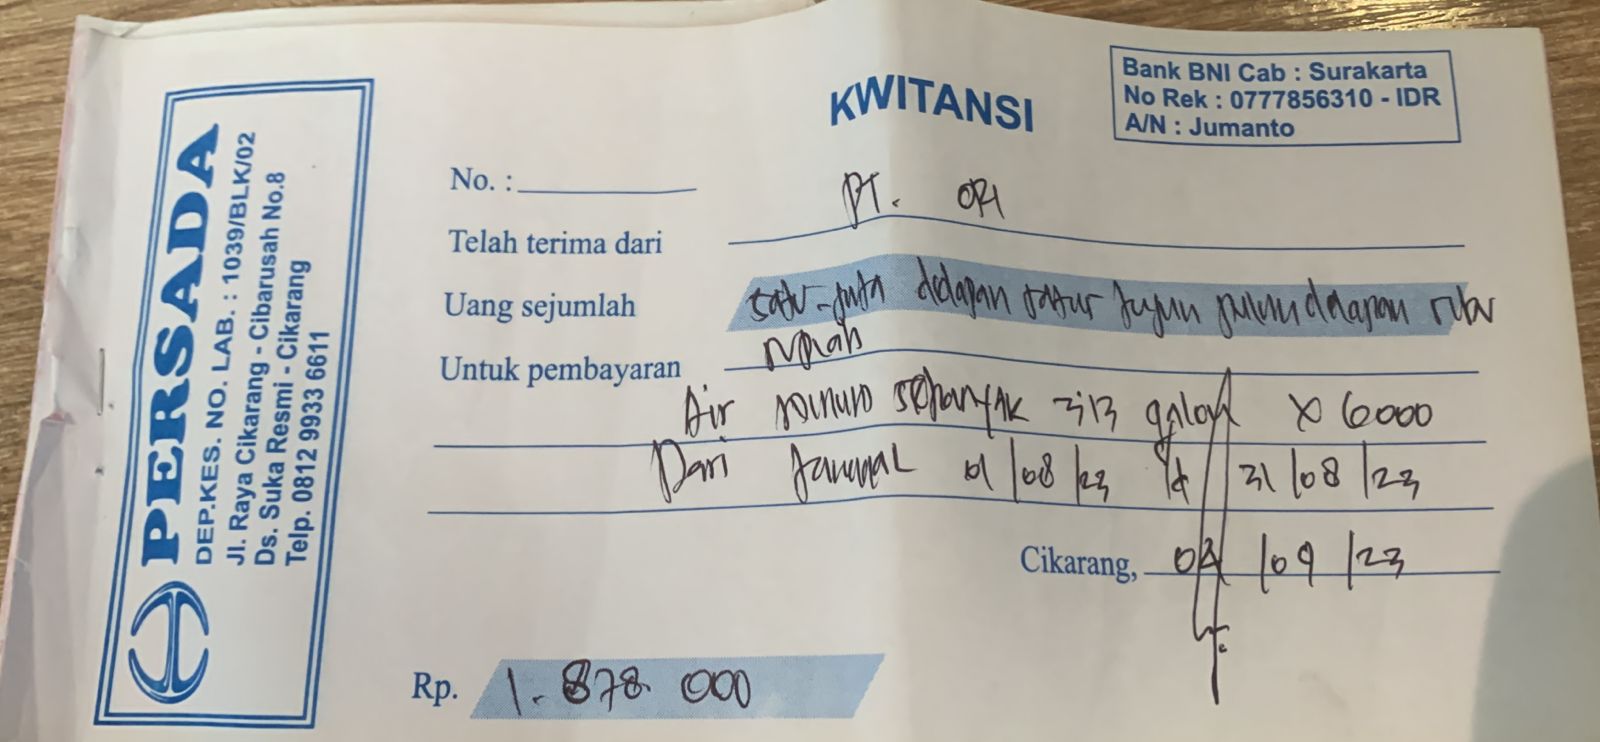 PERSADA
DEP.KES. NO. LAB. : 1039/BLK/02
Jl. Raya Cikarang - Cibarusah No.8
Ds. Suka Resmi - Cikarang
Telp. 0812 9933 6611
KWITANSI
Bank BNI Cab : Surakarta
No Rek : 0777856310 - IDR
A/N : Jumanto
No. :
Telah terima dari PT.
Uang sejumlah satu juta delapan ratus tujuh puluh delapan ribu
Untuk pembayaran rupiah
Air minum sebanyak 313 galon x 6000
Dari tanggal 01/08/23 31/08/23
Cikarang, /09/23
Rp. 1.878.000